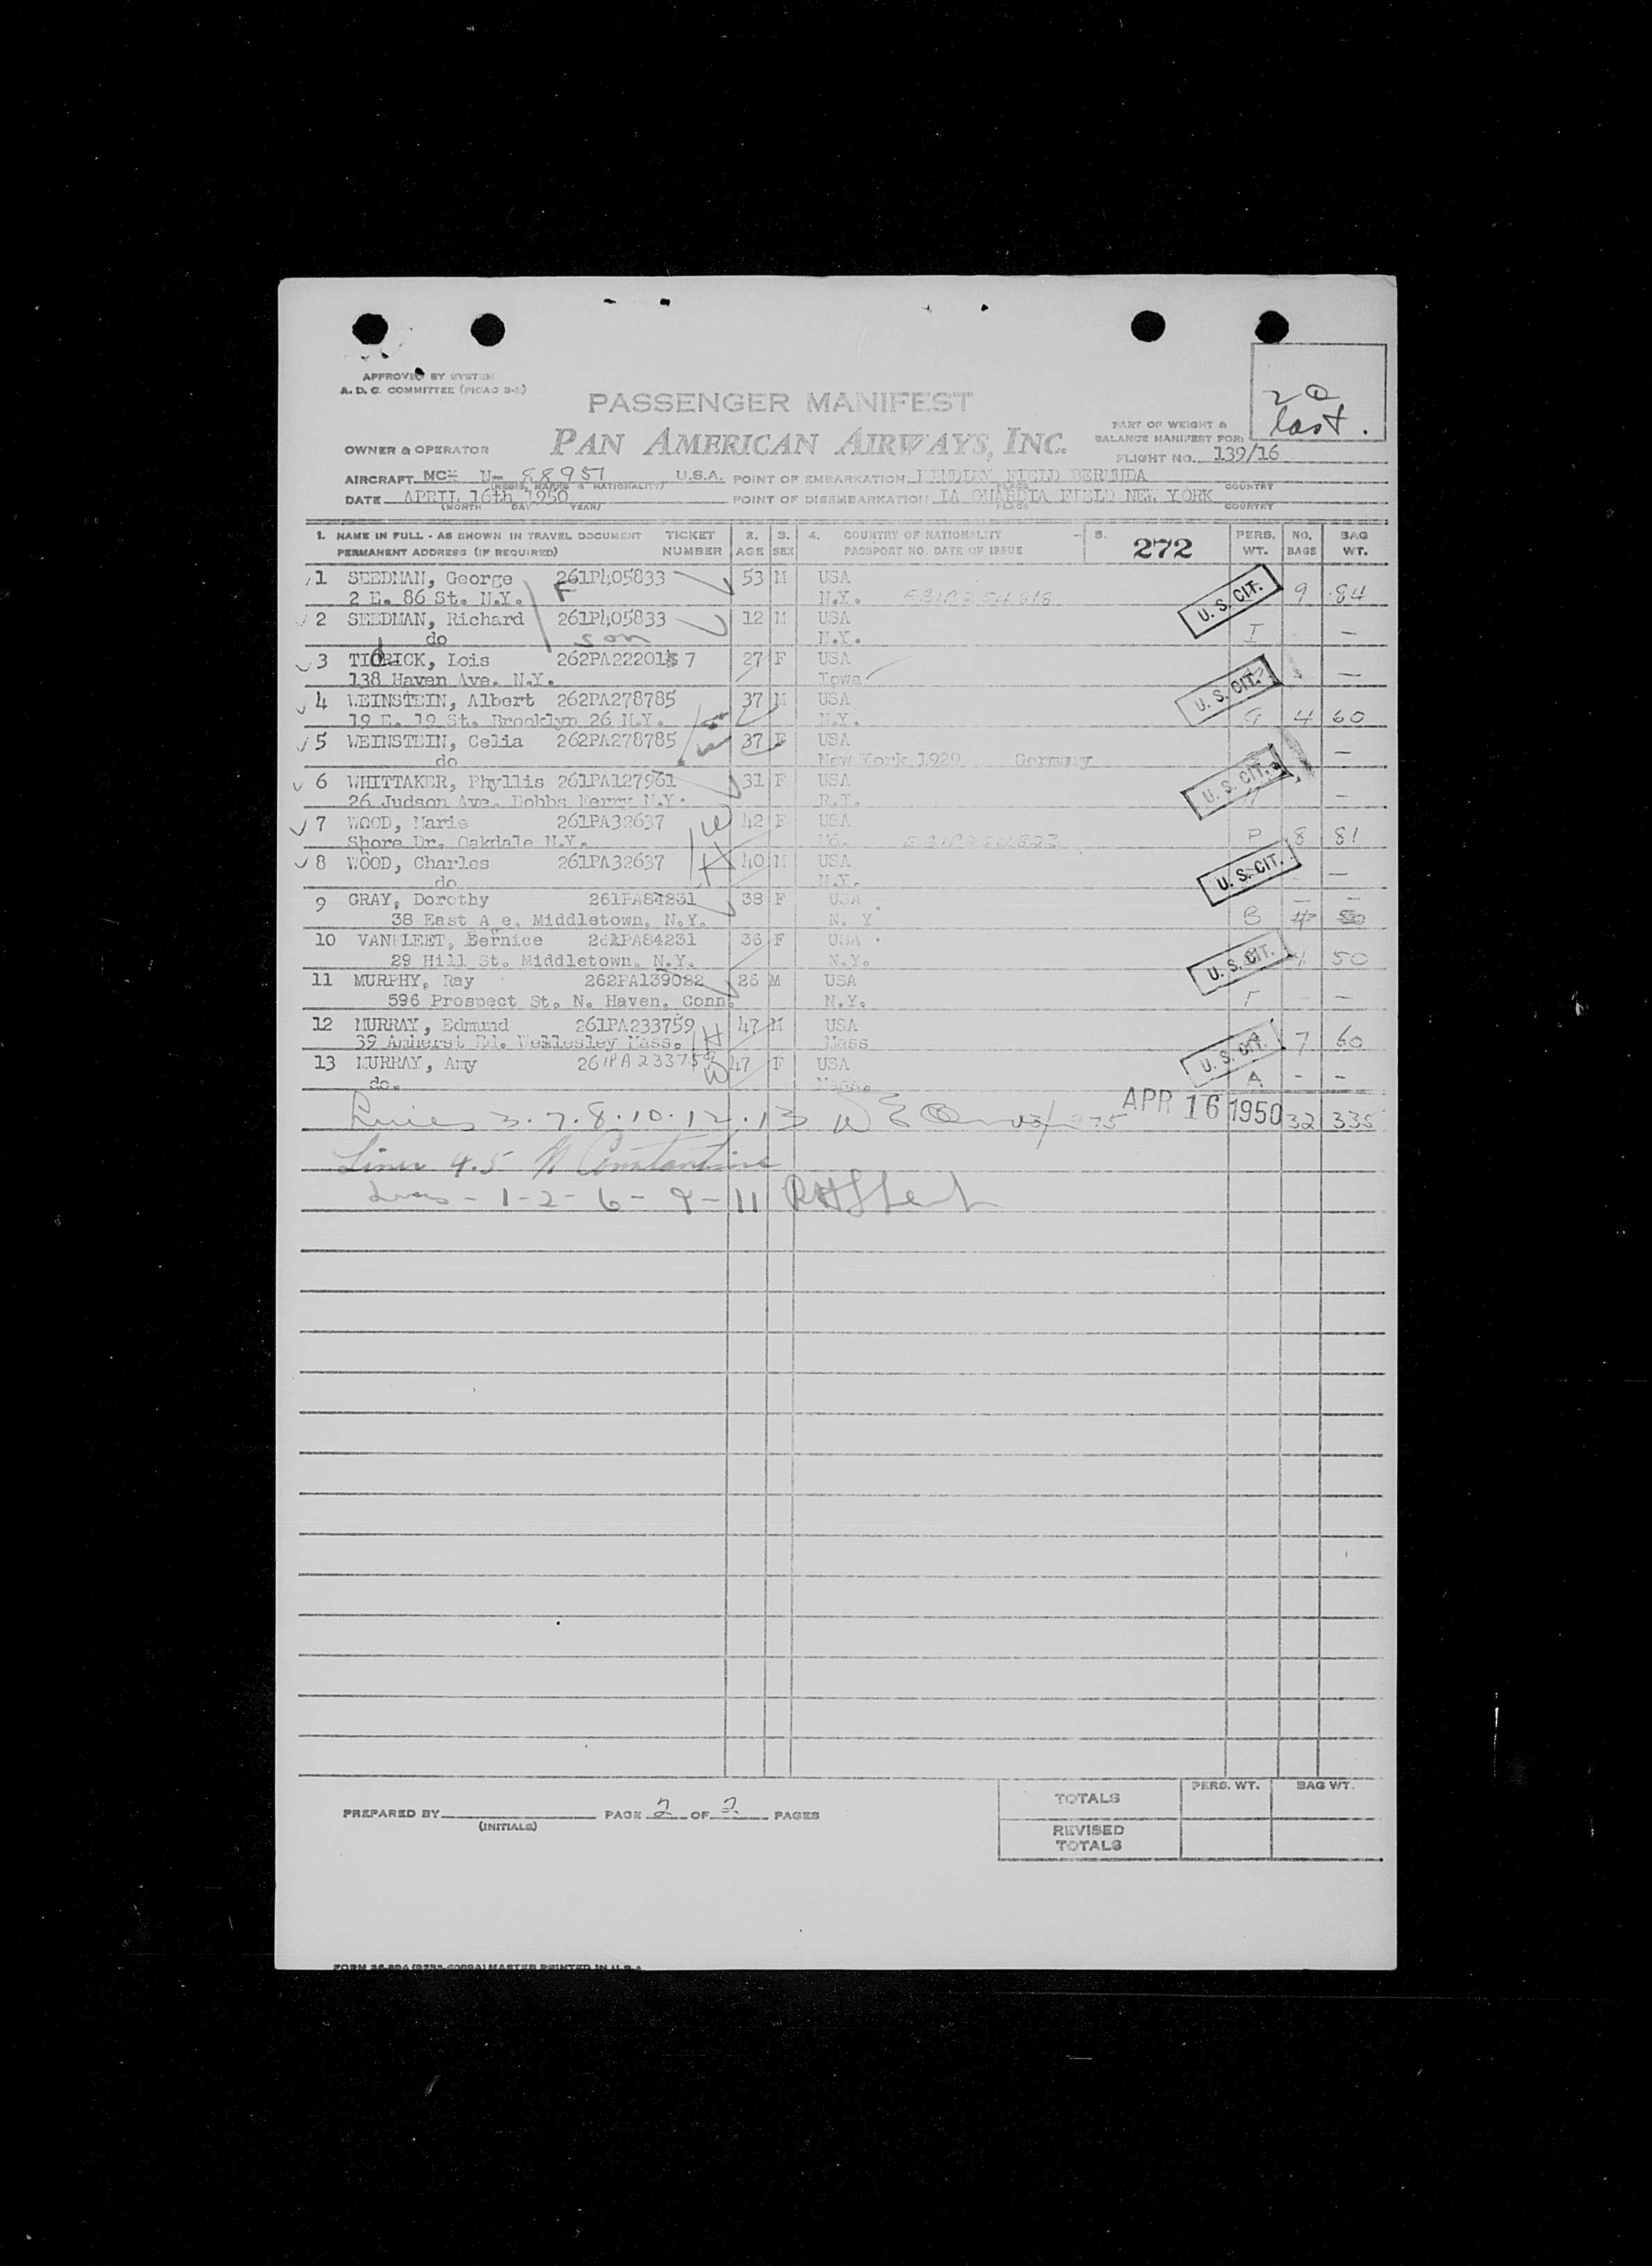 APPROVED BY SYSTEM
A. D. C. COMMITTEE (PICAO 3-2)
20
last.
PASSENGER MANIFEST
PART OF WEIGHT &
BALANCE MANIFEST FOR:
OWNER & OPERATOR PAN AMERICAN AIRWAYS, INC.
FLIGHT NO. 139/16
AIRCRAFT NC N- 88951 U.S.A. POINT OF EMBARKATION KINDLEY FIELD BERMUDA
(REGIS. MARKS & NATIONALITY) PLACE COUNTRY
DATE APRIL 16th 1950 POINT OF DISEMBARKATION LA GUARDIA FIELD NEW YORK
(MONTH DAY YEAR) PLACE COUNTRY
1. NAME IN FULL - AS SHOWN IN TRAVEL DOCUMENT TICKET 2. 3. 4. COUNTRY OF NATIONALITY 5. 272 PERS. NO. BAG
PERMANENT ADDRESS (IF REQUIRED) NUMBER AGE SEX PASSPORT NO. DATE OF ISSUE WT. BAGS WT.
1 SEEDMAN, George 261P405833 53 M USA
2 E. 86 St. N.Y. F N.Y. U. S. CIT. 9 84
2 SEEDMAN, Richard 261P405833 12 M USA
do son N.Y. I —
3 TIDRICK, Lois 262PA22201 7 27 F USA
138 Haven Ave. N.Y. Iowa U. S. CIT. —
4 WEINSTEIN, Albert 262PA278785 37 M USA
19 E. 19 St. Brooklyn 26 N.Y. N.Y. 4 60
5 WEINSTEIN, Celia 262PA278785 37 F USA
do New York 1929 Germany —
6 WHITTAKER, Phyllis 261PA127961 31 F USA U. S. CIT.
26 Judson Ave. Dobbs Ferry N.Y. R.I. —
7 WOOD, Marie 261PA32637 W 42 F USA
Shore Dr. Oakdale N.Y. Md. P 8 81
8 WOOD, Charles 261PA32637 H 40 M USA U. S. CIT.
do N.Y. —
9 GRAY, Dorothy 261PA84231 38 F USA — —
38 East A e, Middletown, N.Y. N. Y B
10 VANFLEET, Bernice 261PA84231 36 F USA
29 Hill St. Middletown, N.Y. N.Y. U. S. CIT. 4 50
11 MURPHY, Ray 262PA139082 26 M USA
596 Prospect St. N. Haven, Conn. N.Y. - —
12 MURRAY, Edmund 261PA233759 H 47 M USA
39 Amherst Rd. Wellesley Mass. Mass U. S. CIT. 7 60
13 MURRAY, Amy 261PA233759 W 47 F USA
do. Mass. A - -
Lines 3.7.8.10.12.13 APR 16 1950 32 335
Lines 4.5 Constantine
Lines - 1-2-6-9-11
TOTALS PERS. WT. BAG WT.
PREPARED BY (INITIALS) PAGE 2 OF 2 PAGES
REVISED
TOTALS